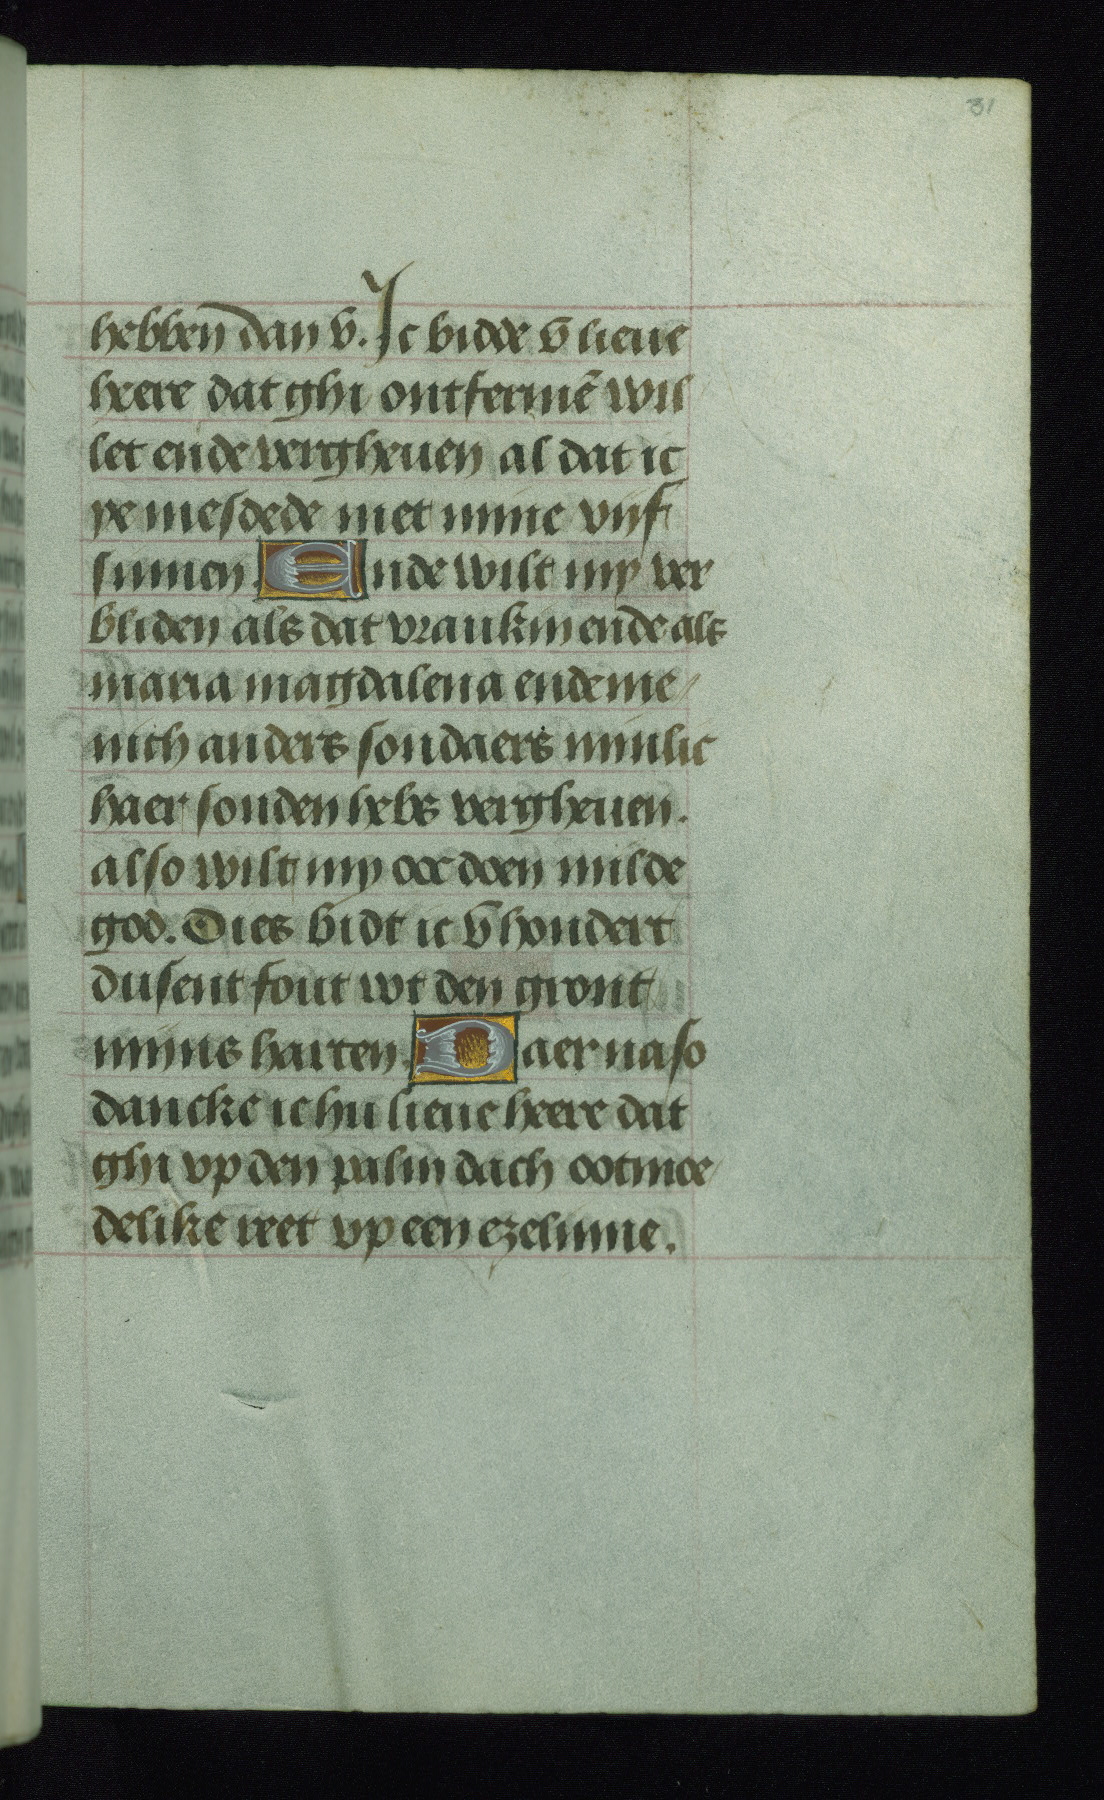 31
hebben dan v̄. Ic bidde v̄ lieue
heere dat ghi ontfermē wil
let ende vergheuen al dat ic
ye mesdede met mine vijf
sinnen. Ende wilt my ver
bliden als dat vraukin ende als
maria magdalena ende me
nich anders sondaers
haer sonden hebs vergheuen.
also wilt my ooc doen milde
god. Dies bidt ic v̄ hondert
dusent fout wt den gront
mijns harten. Daer na so
dancke ic hu lieue heere dat
ghi vp den palm dach ootmoe
delike reet vp een ezelinne.